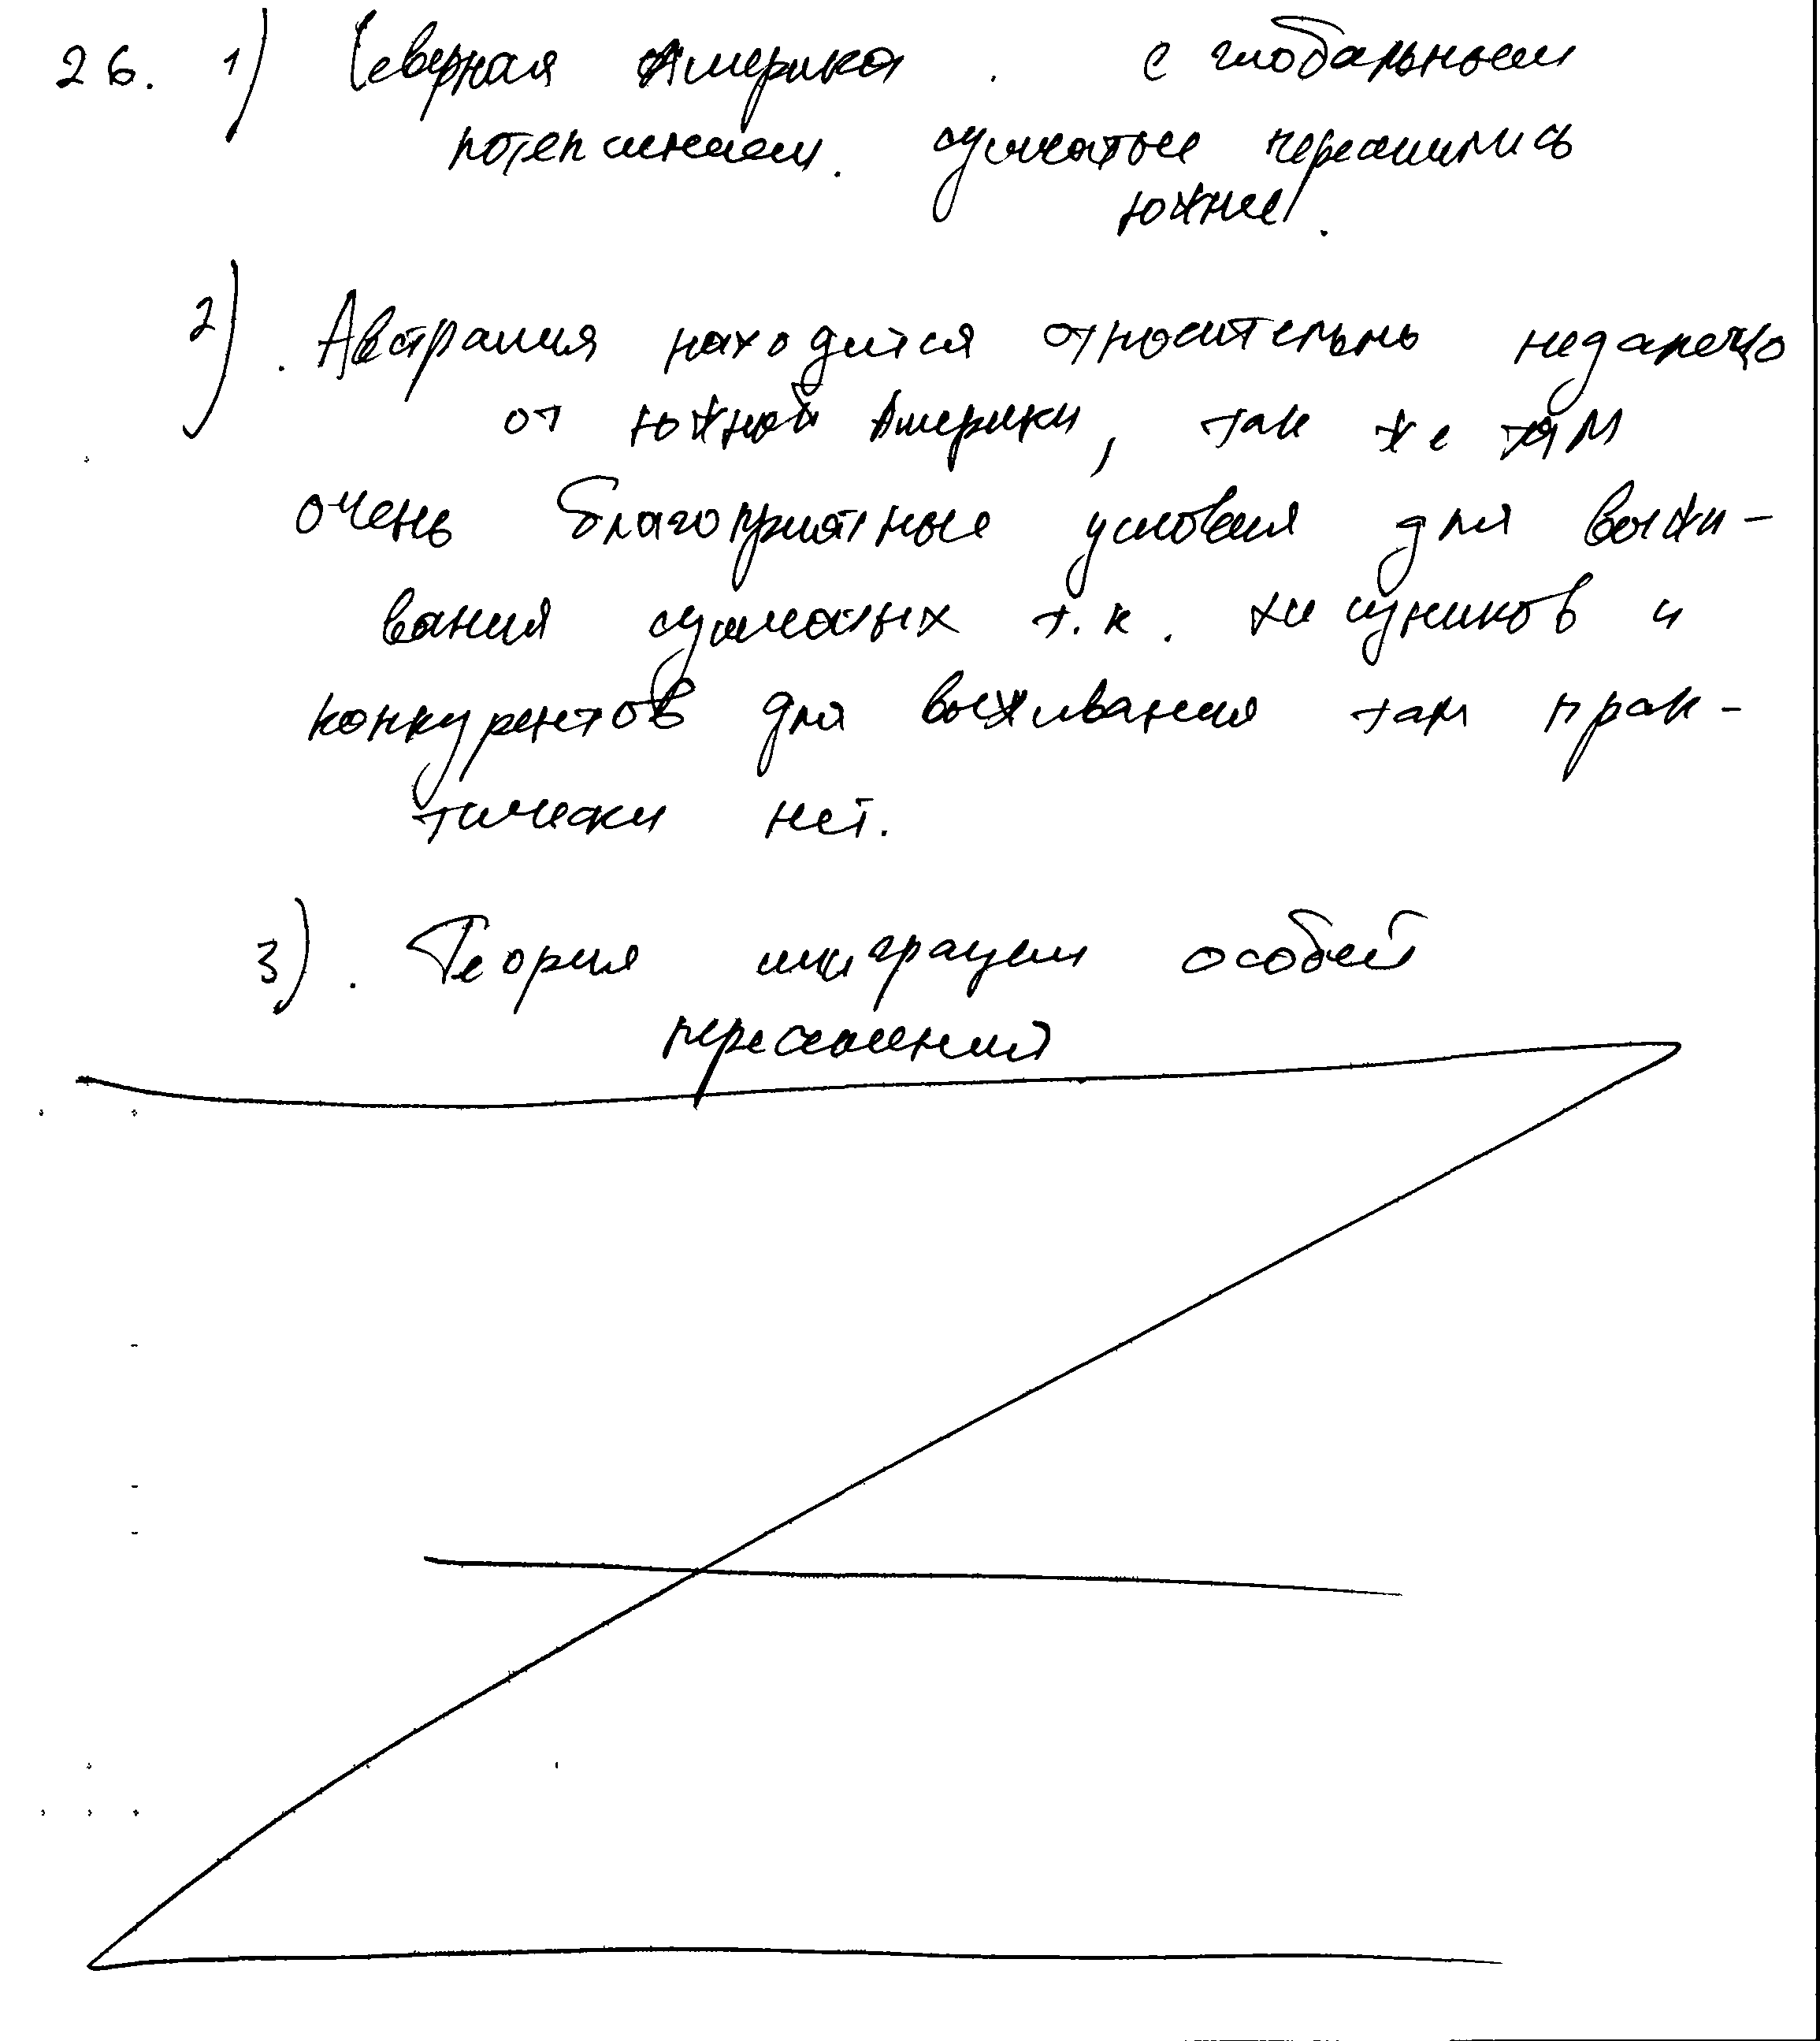 26. 1) Северная Америка . с глобальным
потеплением. сумчатые перешились
южнее.
2) . Австралия находится относительно недалечко
от южной Америки, так же там
очень благоприятные условия для выжи-
вания сумчатых т.к. хищников и
конкурентов для выживания там прак-
тически нет.
3) . Теория миграции особей
переселения